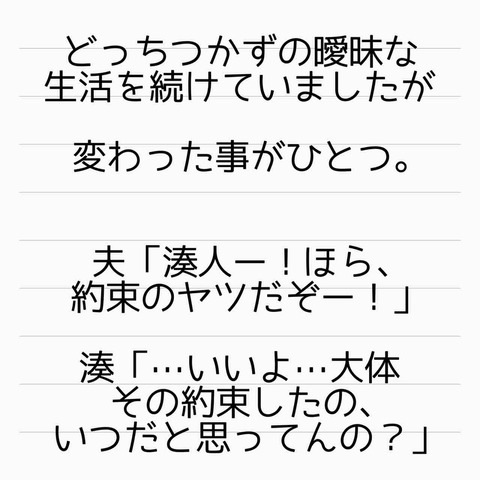 どっちつかずの曖昧な
生活を続けていましたが
変わった事がひとつ。
夫「湊人ー！ほら、
約束のヤツだぞー！」
湊「…いいよ…大体
その約束したの、
いつだと思ってんの？」